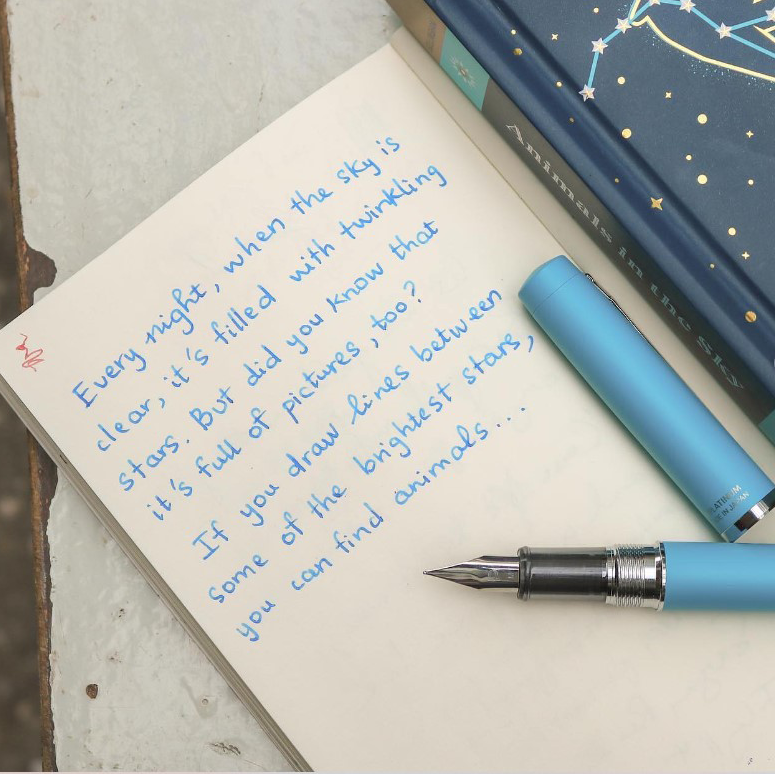 Every night, when the sky is
clear, it's filled with twinkling
stars. But did you know that
it's full of pictures, too?
If you draw lines between
some of the brightest stars,
you can find animals...
Animals in the Sky
PLATINUM
MADE IN JAPAN